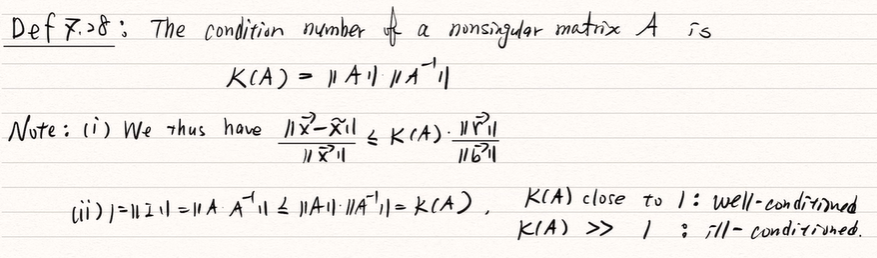 Def 7.28: The condition number of a nonsingular matrix A is
K(A) = ||A|| ||A⁻¹||
Note: (i) We thus have ||x⃗-x̃|| / ||x⃗|| ≤ K(A)· ||r⃗|| / ||b⃗||
(ii) 1=||I||=||A·A⁻¹|| ≤ ||A||·||A⁻¹||=K(A), K(A) close to 1: well-conditioned
K(A) >> 1 : ill-conditioned.